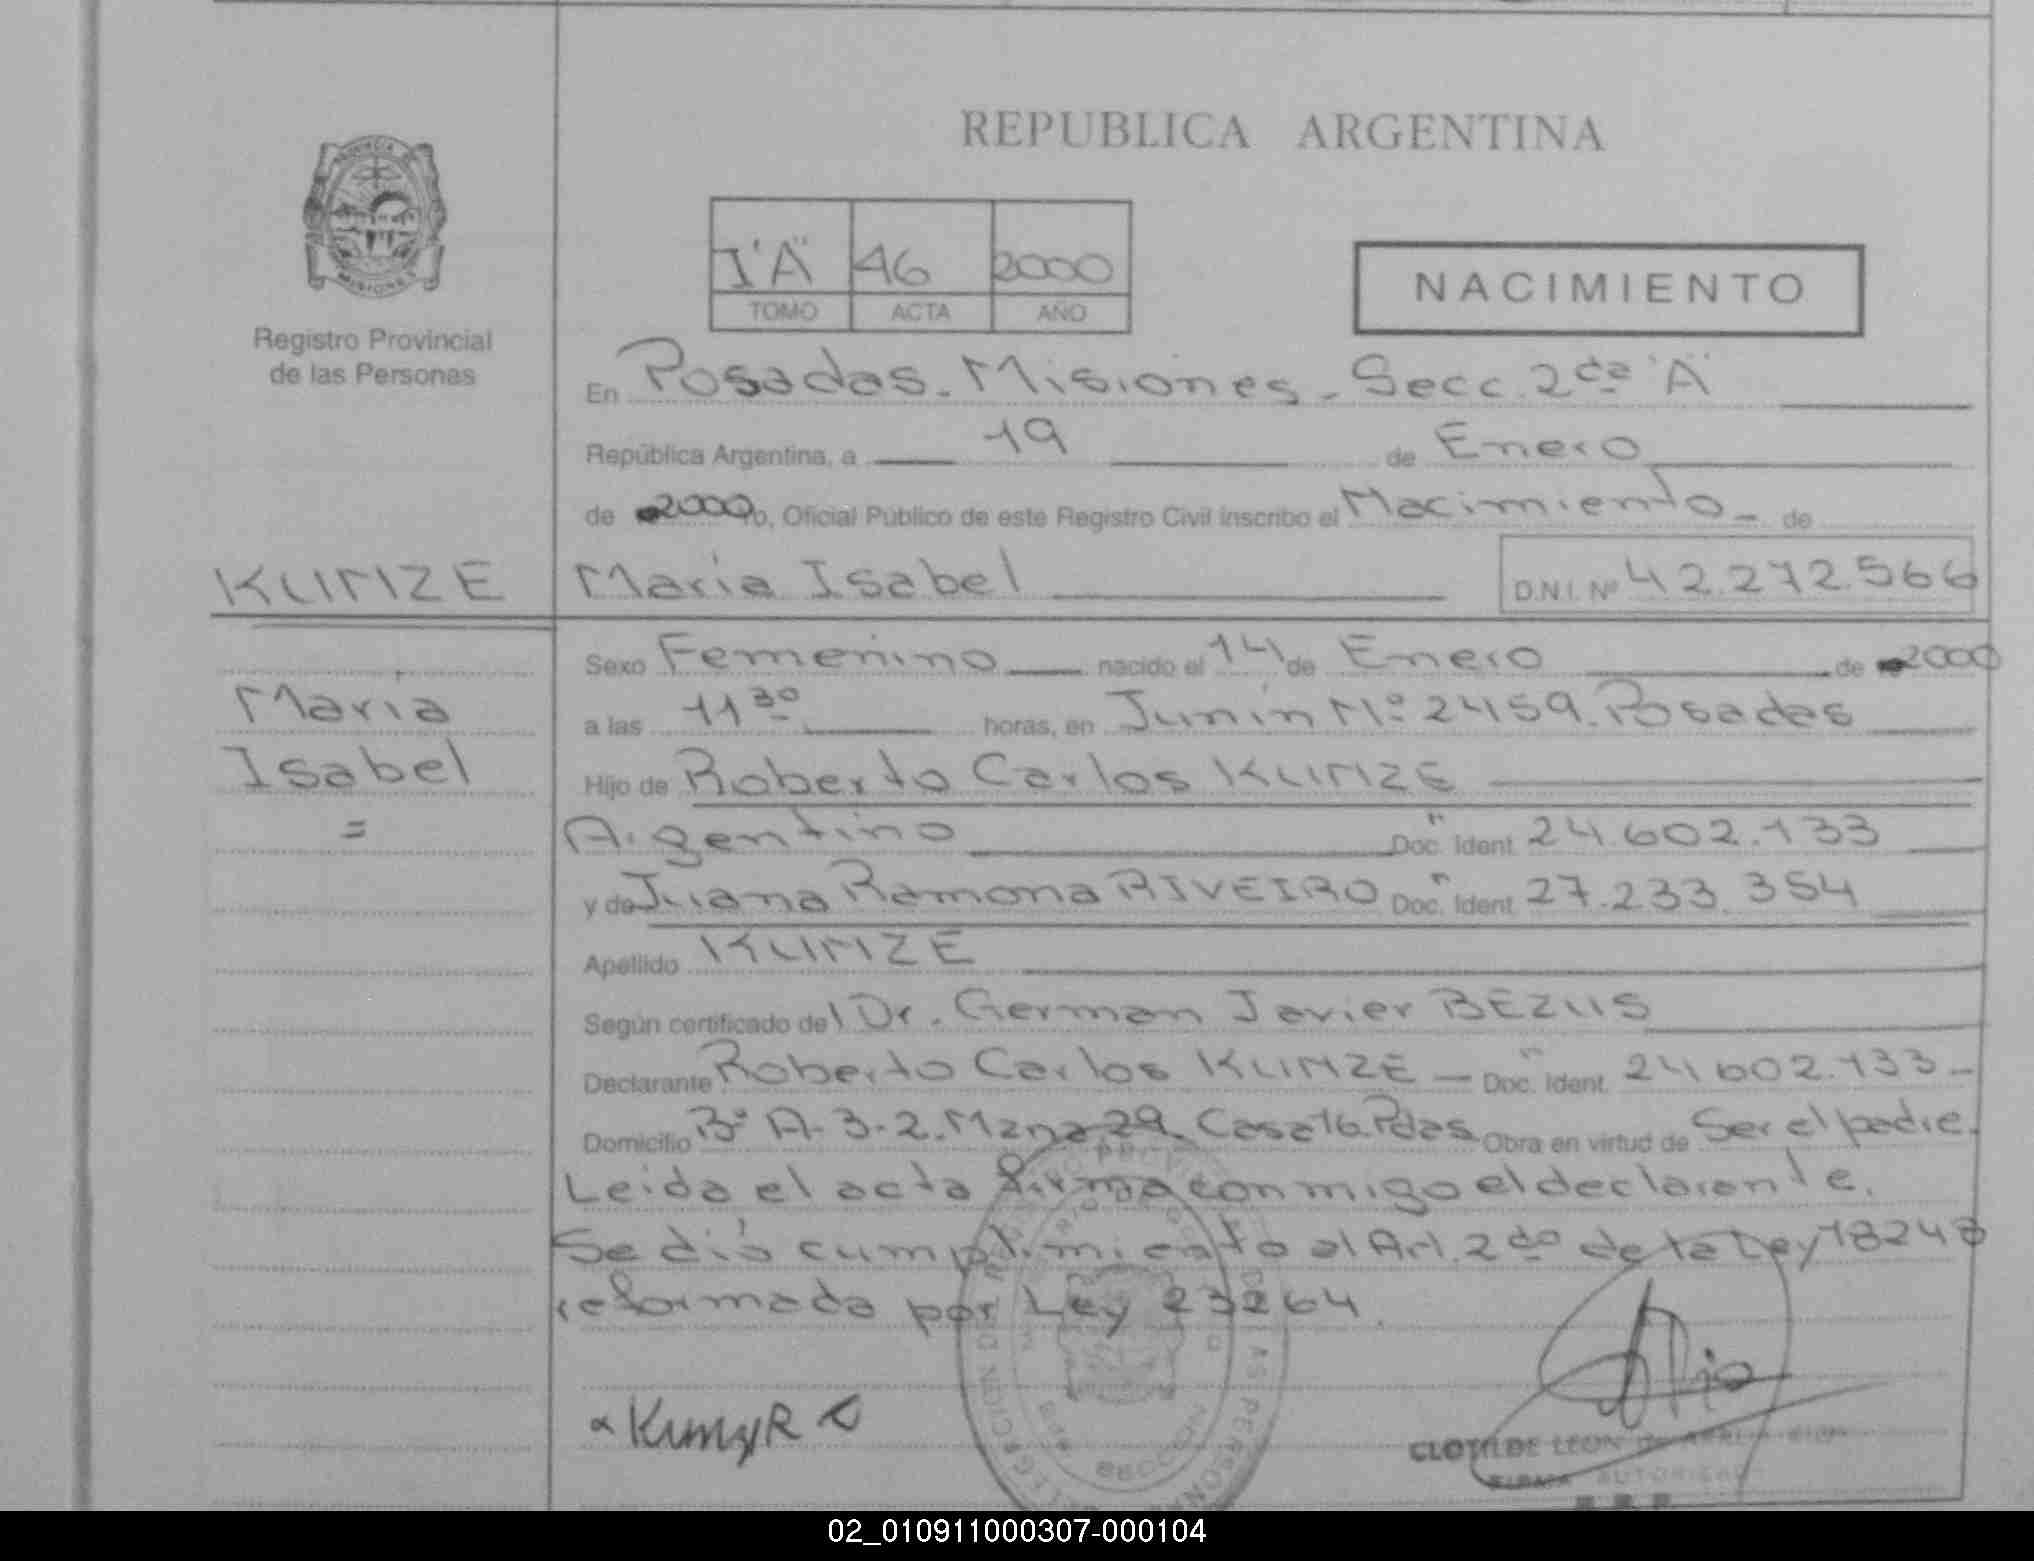 REPUBLICA ARGENTINA
I "A" 46 2000
TOMO ACTA AÑO
NACIMIENTO
PROVINCIA DE
MISIONES
Registro Provincial
de las Personas
En Posadas - Misiones - Secc. 2da "A"
República Argentina, a 19 de Enero
de 2000 yo, Oficial Público de este Registro Civil inscribo el Nacimiento - de
KUNZE
María Isabel D.N.I. Nº 42.272.566
Sexo Femenino nacido el 14 de Enero de 2000
María
Isabel
=
a las 11 30 horas, en Junin Nº 2459. Posadas
Hijo de Roberto Carlos KUNZE
Argentino Doc. Ident. 24.602.133
y de Juana Ramona RIVEIRO Doc. Ident. 27.233.354
Apellido KUNZE
Según certificado del Dr. German Javier BEZUS
Declarante Roberto Carlos KUNZE - Doc. Ident. 24602.133 -
Domicilio Bº A-3-2. Mzna 29. Casa 16. Pdas Obra en virtud de Ser el padre.
Leida el acta firma conmigo el declarante.
Se dió cumplimiento al Art. 2do de la Ley 18248
reformada por Ley 23264.
CLOTILDE LEON DE
02_010911000307-000104